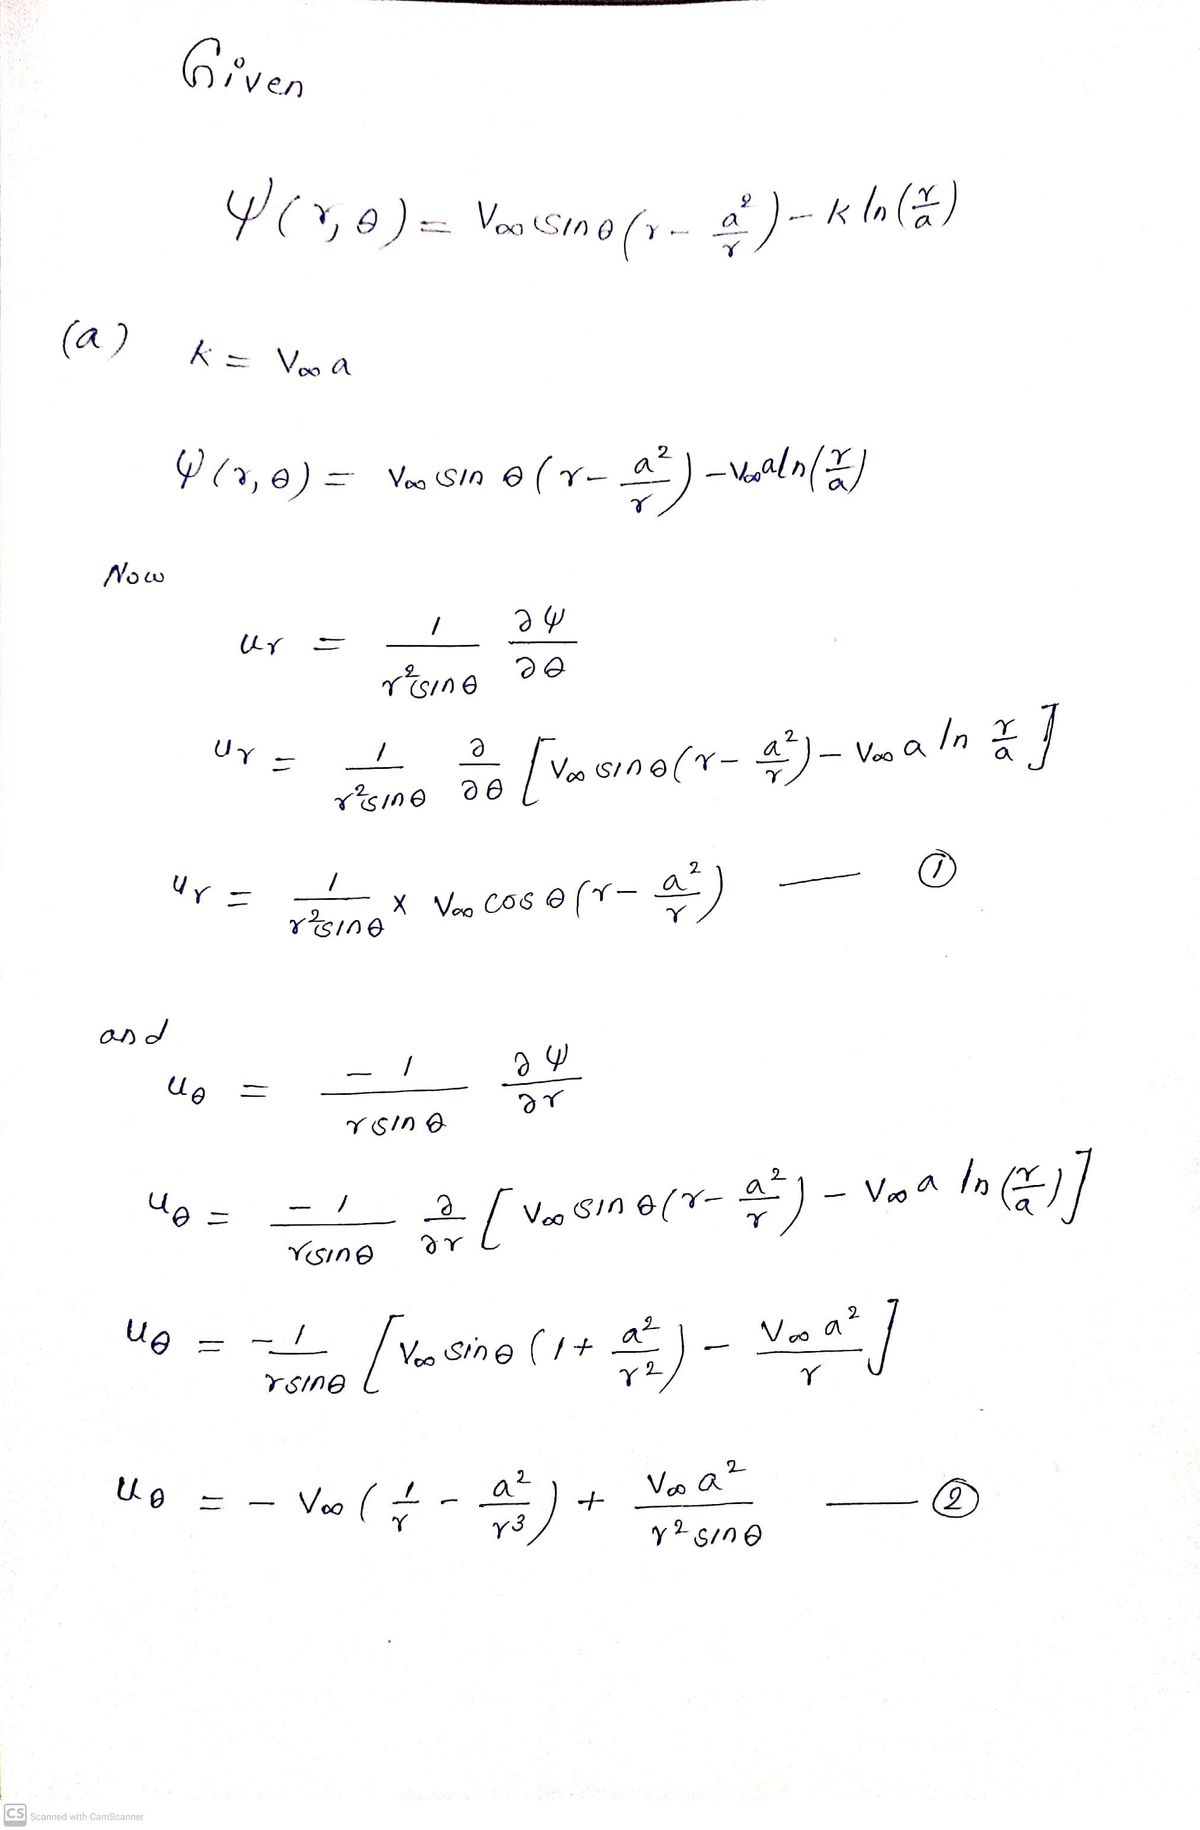 Given
ψ(r,θ) = V∞ sinθ (r - a²/r) - k ln(r/a)
(a) k = V∞ a
ψ(r,θ) = V∞ sin θ (r - a²/r) - V∞ a ln(r/a)
Now
ur = 1/(r² sinθ) ∂ψ/∂θ
ur = 1/(r² sinθ) ∂/∂θ [V∞ sinθ (r - a²/r) - V∞ a ln r/a]
ur = 1/(r² sinθ) x V∞ cos θ (r - a²/r) — ①
and
uθ = -1/(r sin θ) ∂ψ/∂r
uθ = -1/(r sinθ) ∂/∂r [V∞ sin θ (r - a²/r) - V∞ a ln (r/a)]
uθ = -1/(r sinθ) [V∞ sinθ (1 + a²/r²) - V∞ a²/r]
uθ = - V∞ (1/r - a²/r³) + V∞ a²/(r² sinθ) — ②
CS Scanned with CamScanner